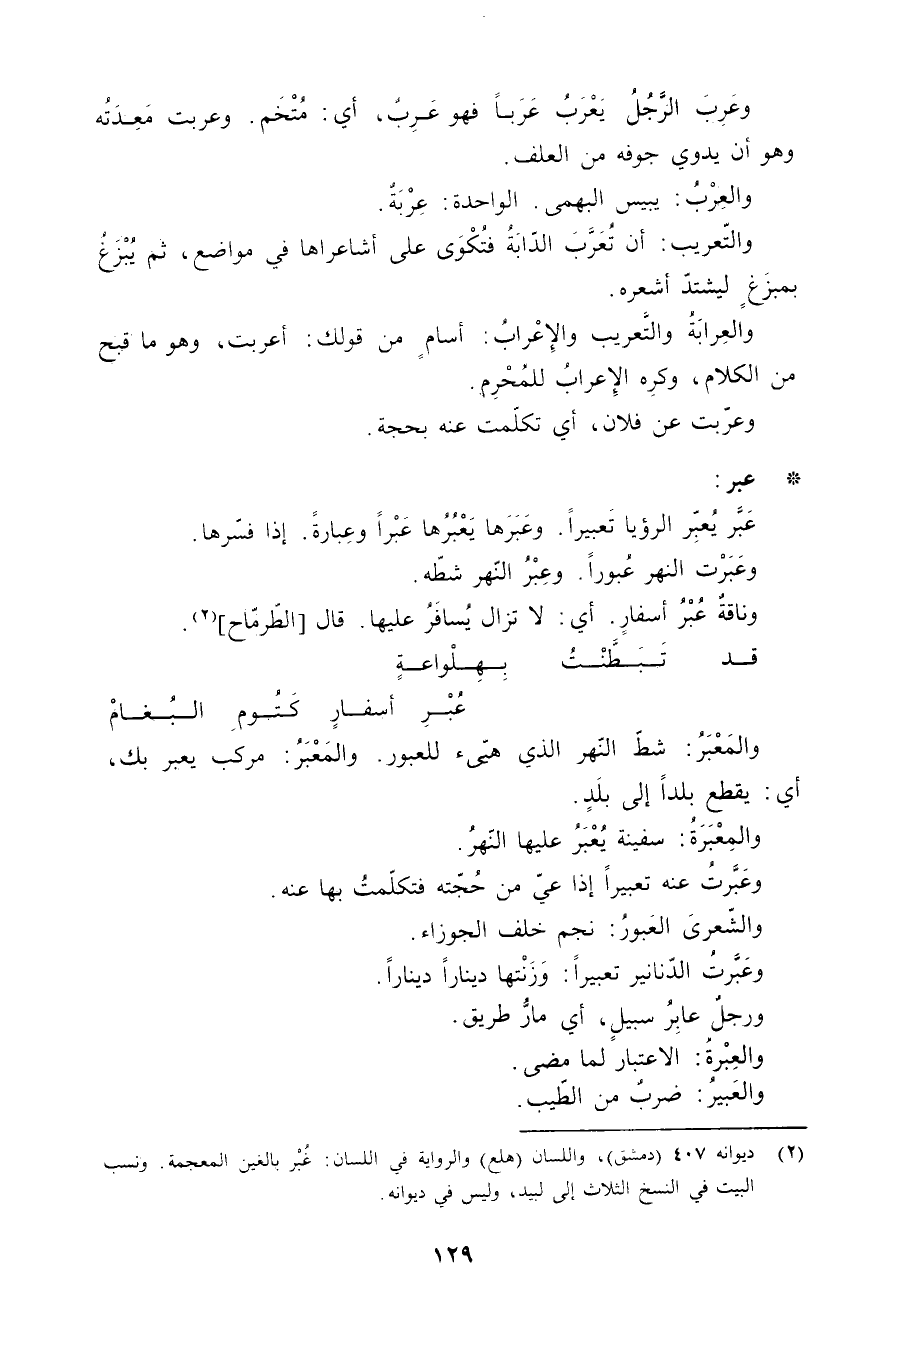 وعَرِبَ الرَّجُلُ يَعْرَبُ عَرَباً فهو عَرِبٌ، أي: مُتْخَم. وعربت مَعِدَتُه
وهو أن يدوي جوفه من العلف.
والعِرْبُ: يبيس البهمى. الواحدة: عِرْبَةٌ.
والتّعريب: أن تُعَرَّبَ الدّابَةُ فتُكْوَى على أشاعراها في مواضع، ثم يُبْزَغُ
بمبزَغٍ ليشتدّ أشعره.
والعِرابَةُ والتَّعريب والإِعْرابُ: أسامٍ من قولك: أعربت، وهو ما قبح
من الكلام، وكره الإِعرابُ للمُحْرِم.
وعرّبت عن فلان، أي تكلّمت عنه بحجة.
* عبر:
عَبَّر يُعبِّر الرؤيا تَعبيراً. وعَبَرَها يَعْبُرُها عَبْراً وعِبارةً. إذا فسّرها.
وعَبَرْت النهر عُبوراً. وعِبْرُ النّهر شطّه.
وناقةٌ عُبْرُ أسفارٍ. أي: لا تزال يُسافَرُ عليها. قال [الطّرمّاح](٢).
قد تَبَطَّنْتُ بِهِلْواعةٍ
عُبْرِ أسفارٍ كَتُومِ البُغامْ
والمَعْبَرُ: شطّ النّهر الذي هيّىء للعبور. والمَعْبَرُ: مركب يعبر بك،
أي: يقطع بلداً إلى بلَدٍ.
والمِعْبَرَةُ: سفينة يُعْبَرُ عليها النّهرُ.
وعَبَّرتُ عنه تعبيراً إذا عيّ من حُجّته فتكلّمتُ بها عنه.
والشّعرىَ العَبورُ: نجم خلف الجوزاء.
وعَبَّرتُ الدّنانير تعبيراً: وَزَنْتها ديناراً ديناراً.
ورجلٌ عابِرُ سبيلٍ، أي مارُّ طريق.
والعِبْرةُ: الاعتبار لما مضى.
والعَبيرُ: ضربٌ من الطّيب.
(٢) ديوانه ٤٠٧ (دمشق)، واللسان (هلع) والرواية في اللسان: غُبْر بالغين المعجمة. ونسب
البيت في النسخ الثلاث إلى لبيد، وليس في ديوانه.
١٢٩